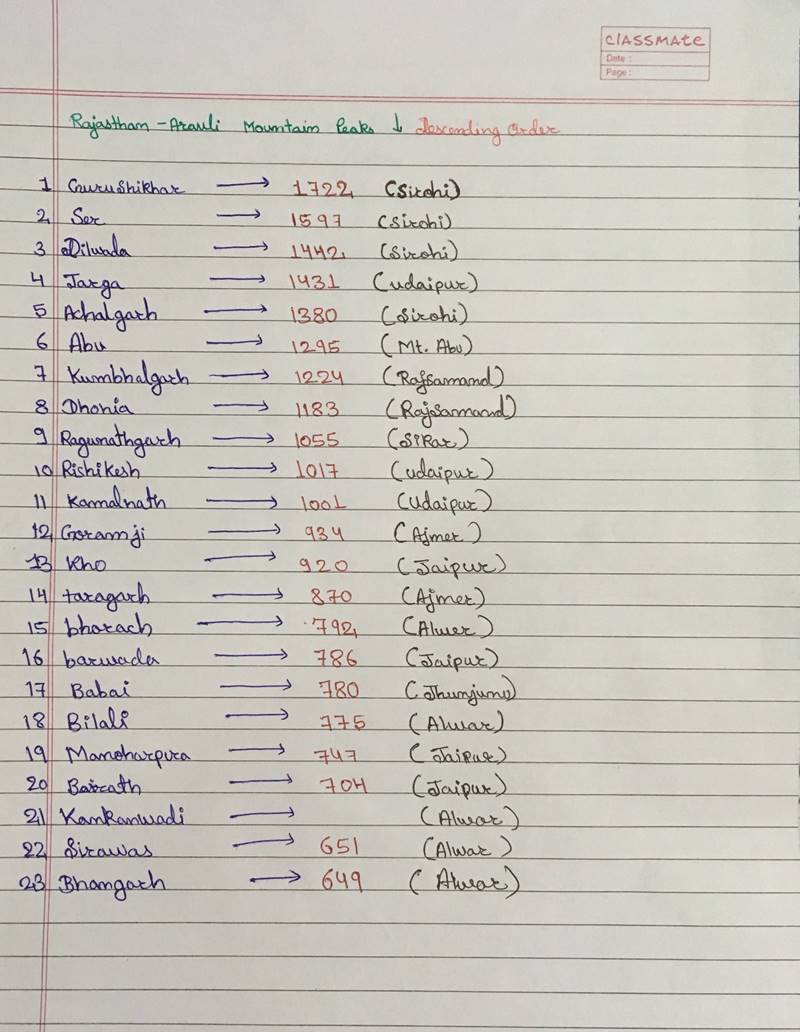 CLASSMATE
Date :
Page :
Rajasthan - Aravli Mountain Peaks ↓ Descending Order
1 GuruShikhar → 1722 (Sirohi)
2 Ser → 1597 (Sirohi)
3 Dilwada → 1442 (Sirohi)
4 Jarga → 1431 (Udaipur)
5 Achalgarh → 1380 (Sirohi)
6 Abu → 1295 (Mt. Abu)
7 Kumbhalgarh → 1224 (Rajsamand)
8 Dhonia → 1183 (Rajsamand)
9 Ragunathgarh → 1055 (SiKar)
10 Rishikesh → 1017 (Udaipur)
11 Kamalnath → 1001 (Udaipur)
12 Goramji → 934 (Ajmer)
13 Kho → 920 (Jaipur)
14 taragarh → 870 (Ajmer)
15 bharach → 792 (Alwer)
16 barwada → 786 (Jaipur)
17 Babai → 780 (Jhunjunu)
18 Bilali → 775 (Alwar)
19 Manoharpura → 747 (Jaipur)
20 Bairath → 704 (Jaipur)
21 Kankanwadi → (Alwar)
22 Sirawas → 651 (Alwar)
23 Bhangarh → 649 (Alwar)